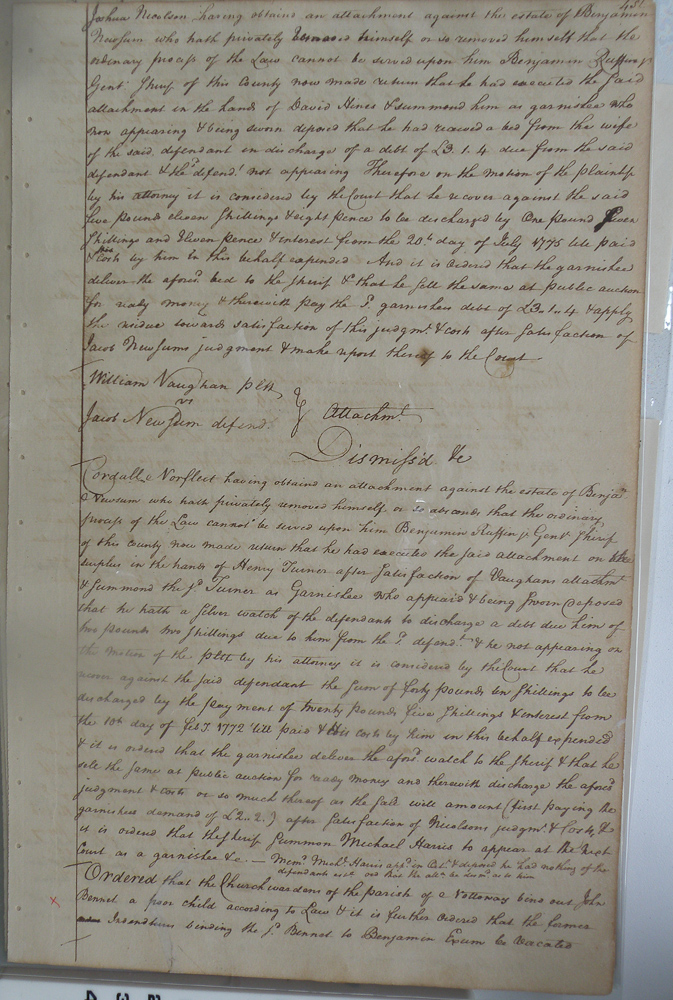 Joshua Nicolson having obtain'd an attachment against the estate of Benjamin
Newsum who hath privately removed himself or so removed himself that the
ordinary process of the Law cannot be served upon him Benjamin Ruffin jr
Gent. Sherif of this County now made return that he had executed the said
attachment in the hands of David Hines & summond him as garnishee who
now appearing & being sworn deposed that he had received a bed from the wife
of the said defendant in discharge of a debt of £3.1.4 due from the said
defendant & the sd defendt. not appearing Therefore on the motion of the plaintif
by his attorney it is considered by the Court that he recover against the said
five pounds eleven shillings & eight pence to be discharged by One pound seven
shillings and Eleven pence & interest from the 20th day of July 1775 till paid
& his costs by him in this behalf expended And it is ordered that the garnishee
deliver the aforesd. bed to the Sherif & that he sell the same at public auction
for ready money & therewith pay the sd. garnishees debt of £3.1.4 & apply
the residue towards satisfaction of this judgmt. & costs after satisfaction of
Jacob Newsums judgment & make report thereof to the Court
William Vaughan pltf.
vs
Jacob Newsum defend.
} Attachmt.
Dismiss'd &c
Cordall Norfleet having obtaind an attachment against the estate of Benja.
Newsum who hath privately removed himself or so absconds that the ordinary
process of the Law cannot be served upon him Benjamin Ruffin jr Gent. Sherif
of this county now made return that he had executed the said attachment on the
surplus in the hands of Henry Turner after satisfaction of Vaughans attachmt
& summond the sd Turner as Garnishee who appeard & being sworn deposed
that he hath a silver watch of the defendants to discharge a debt due him of
two pounds two shillings due to him from the sd. defendt. & he not appearing on
the motion of the pltf by his attorney it is considered by the Court that he
recover against the said defendant the sum of forty pounds ten shillings to be
discharged by the payment of twenty pounds five shillings & interest from
the 10th day of Feby. 1772 till paid & his costs by him in this behalf expended
& it is ordered that the garnishee deliver the aforsd. watch to the Sherif & that he
sell the same at public auction for ready money and therewith discharge the aforsd
judgment & costs or so much thereof as the sale will amount (first paying the
garnishees demand of £2..2.) after satisfaction of Nicolsons judgmt. & Costs &
it is ordered that the Sherif summon Michael Harris to appear at the next
Court as a garnishee &c. — Memo. Michl. Harris appd. in Ct. & deposed he had nothing of the
defendants
Ordered that the Church wardens of the parish of Nottoway bind out John
Bennet a poor child according to Law & it is further ordered that the former
Indentures binding the sd. Bennet to Benjamin Exum be vacated